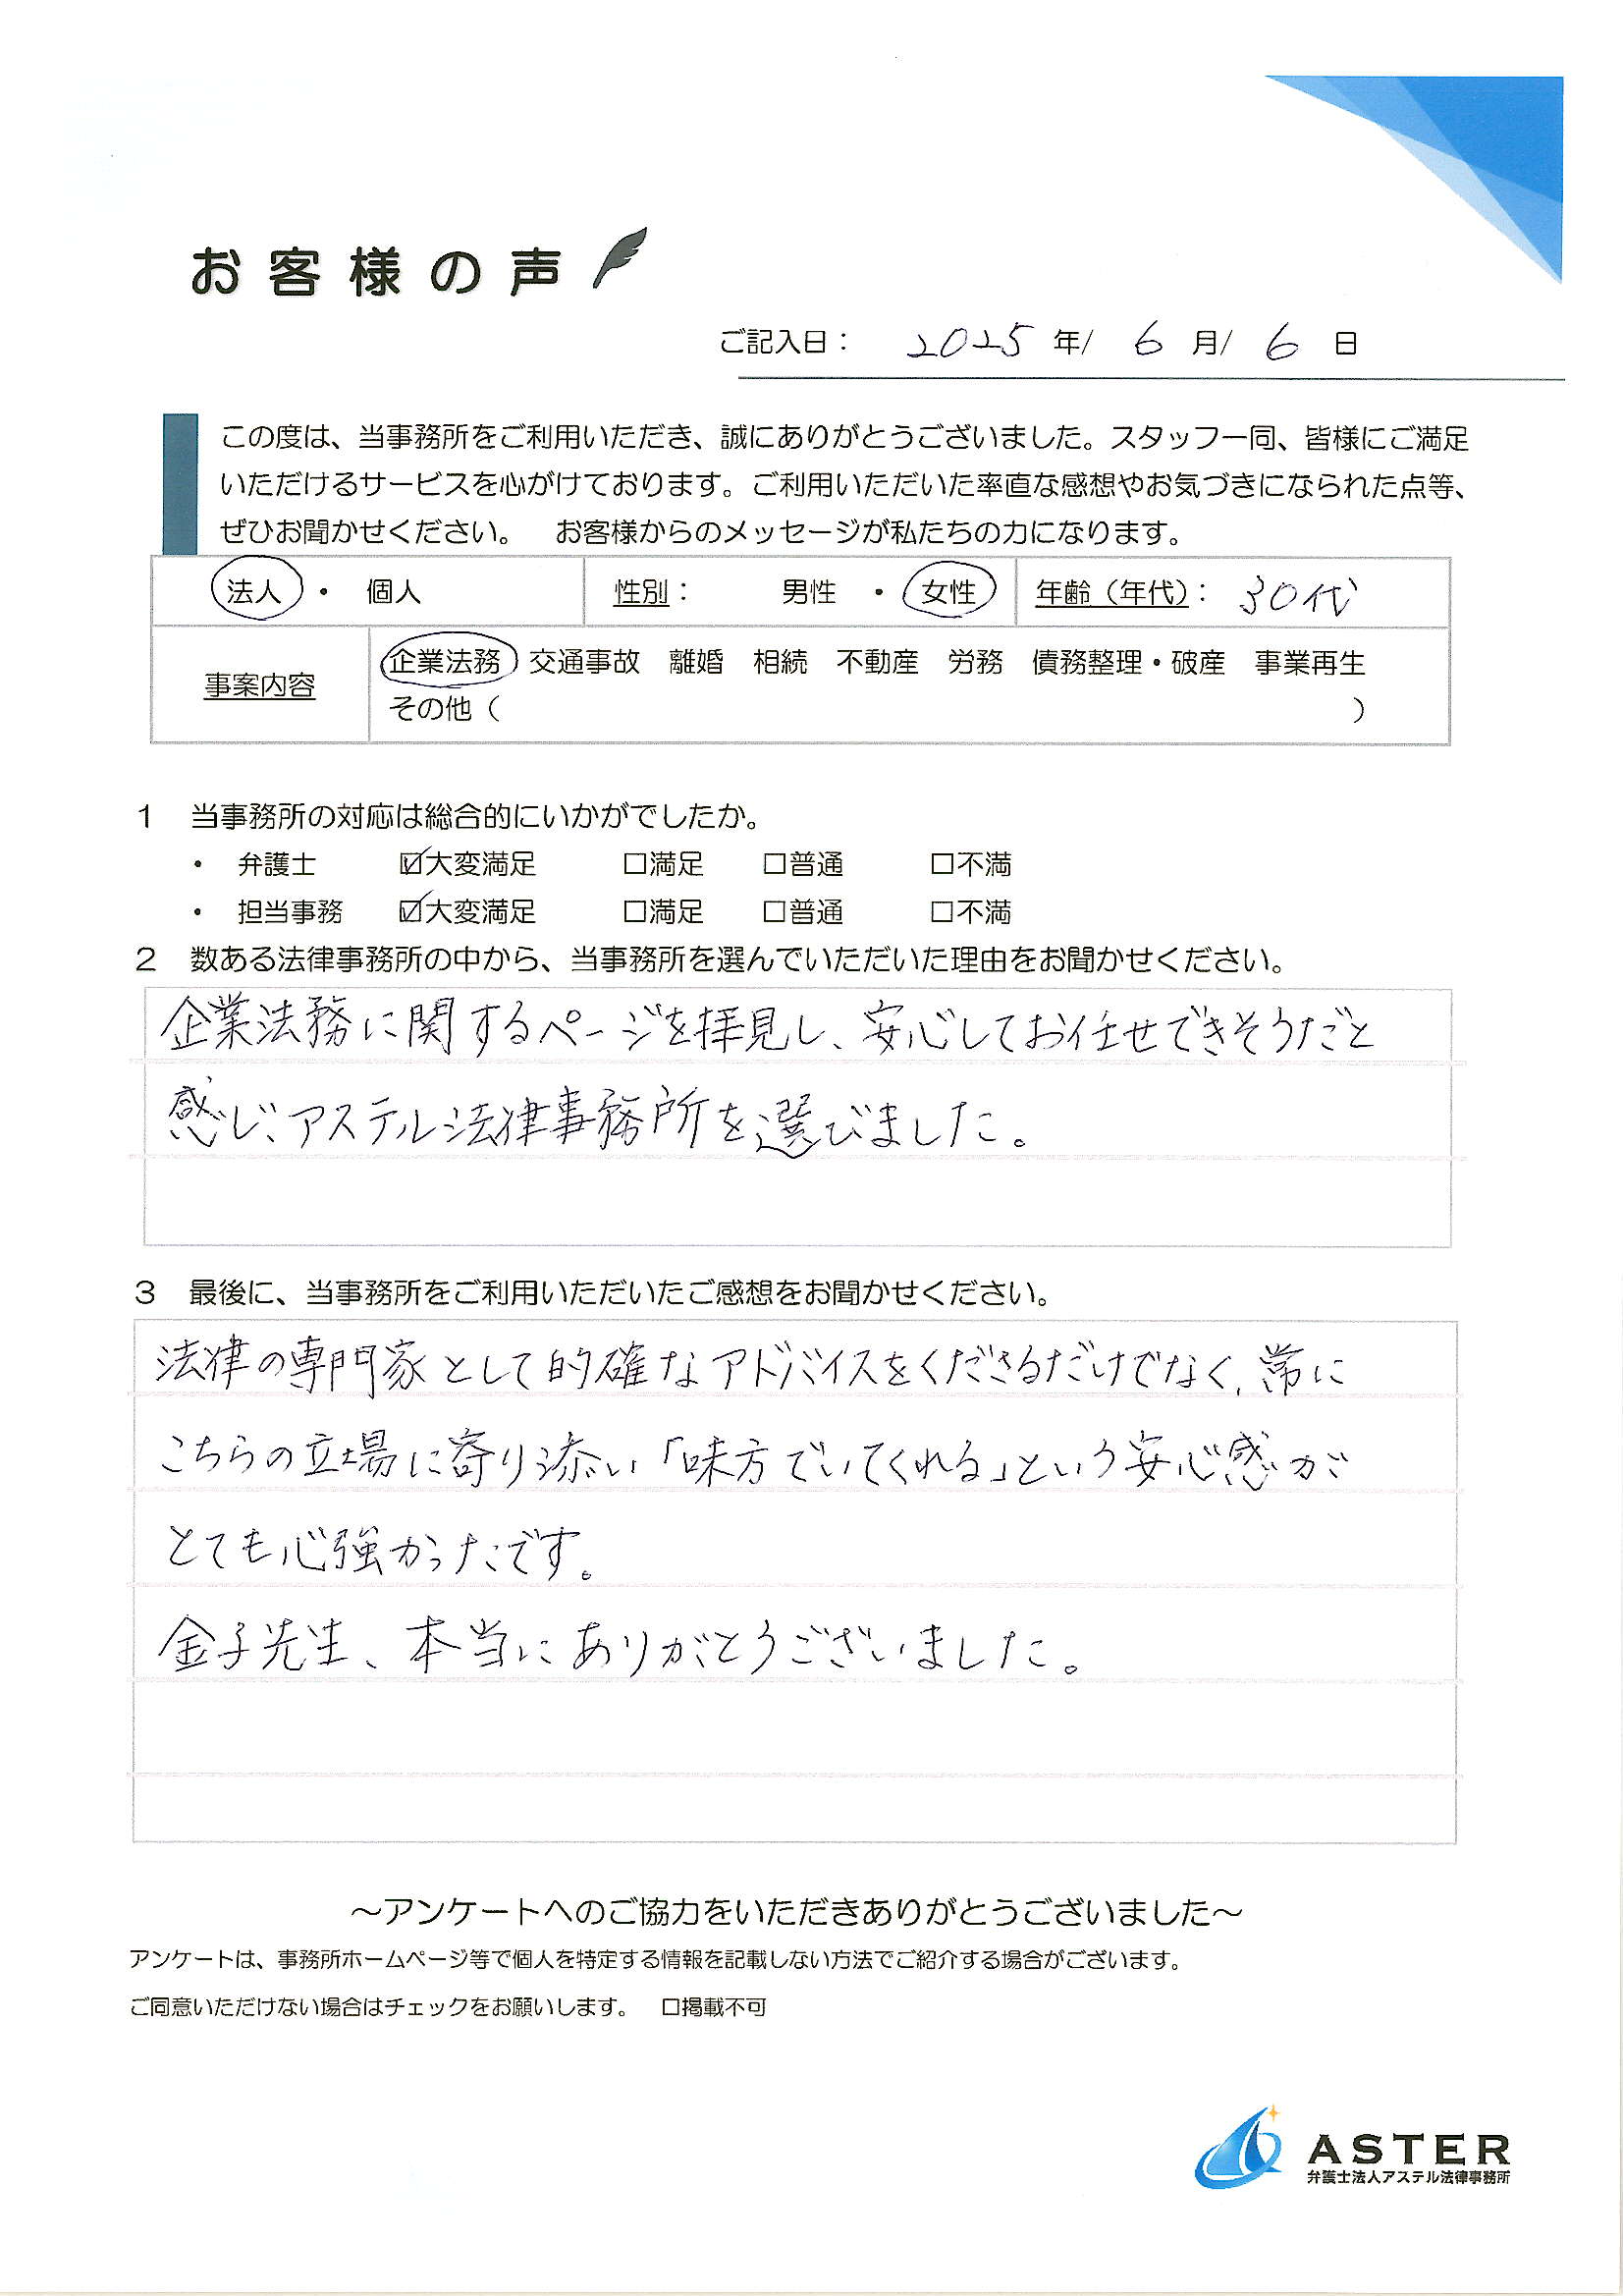 お客様の声
ご記入日： 2025 年/ 6 月/ 6 日
この度は、当事務所をご利用いただき、誠にありがとうございました。スタッフ一同、皆様にご満足
いただけるサービスを心がけております。ご利用いただいた率直な感想やお気づきになられた点等、
ぜひお聞かせください。　お客様からのメッセージが私たちの力になります。
法人 ・ 個人　性別： 男性 ・ 女性　年齢（年代）： 30代
事案内容　企業法務　交通事故　離婚　相続　不動産　労務　債務整理・破産　事業再生
その他（　　　）
1　当事務所の対応は総合的にいかがでしたか。
・　弁護士　☑大変満足　□満足　□普通　□不満
・　担当事務　☑大変満足　□満足　□普通　□不満
2　数ある法律事務所の中から、当事務所を選んでいただいた理由をお聞かせください。
企業法務に関するページを拝見し、安心してお任せできそうだと
感じ、アステル法律事務所を選びました。
3　最後に、当事務所をご利用いただいたご感想をお聞かせください。
法律の専門家として的確なアドバイスをくださるだけでなく、常に
こちらの立場に寄り添い「味方でいてくれる」という安心感が
とても心強かったです。
金子先生、本当にありがとうございました。
～アンケートへのご協力をいただきありがとうございました～
アンケートは、事務所ホームページ等で個人を特定する情報を記載しない方法でご紹介する場合がございます。
ご同意いただけない場合はチェックをお願いします。　□掲載不可
ASTER
弁護士法人アステル法律事務所